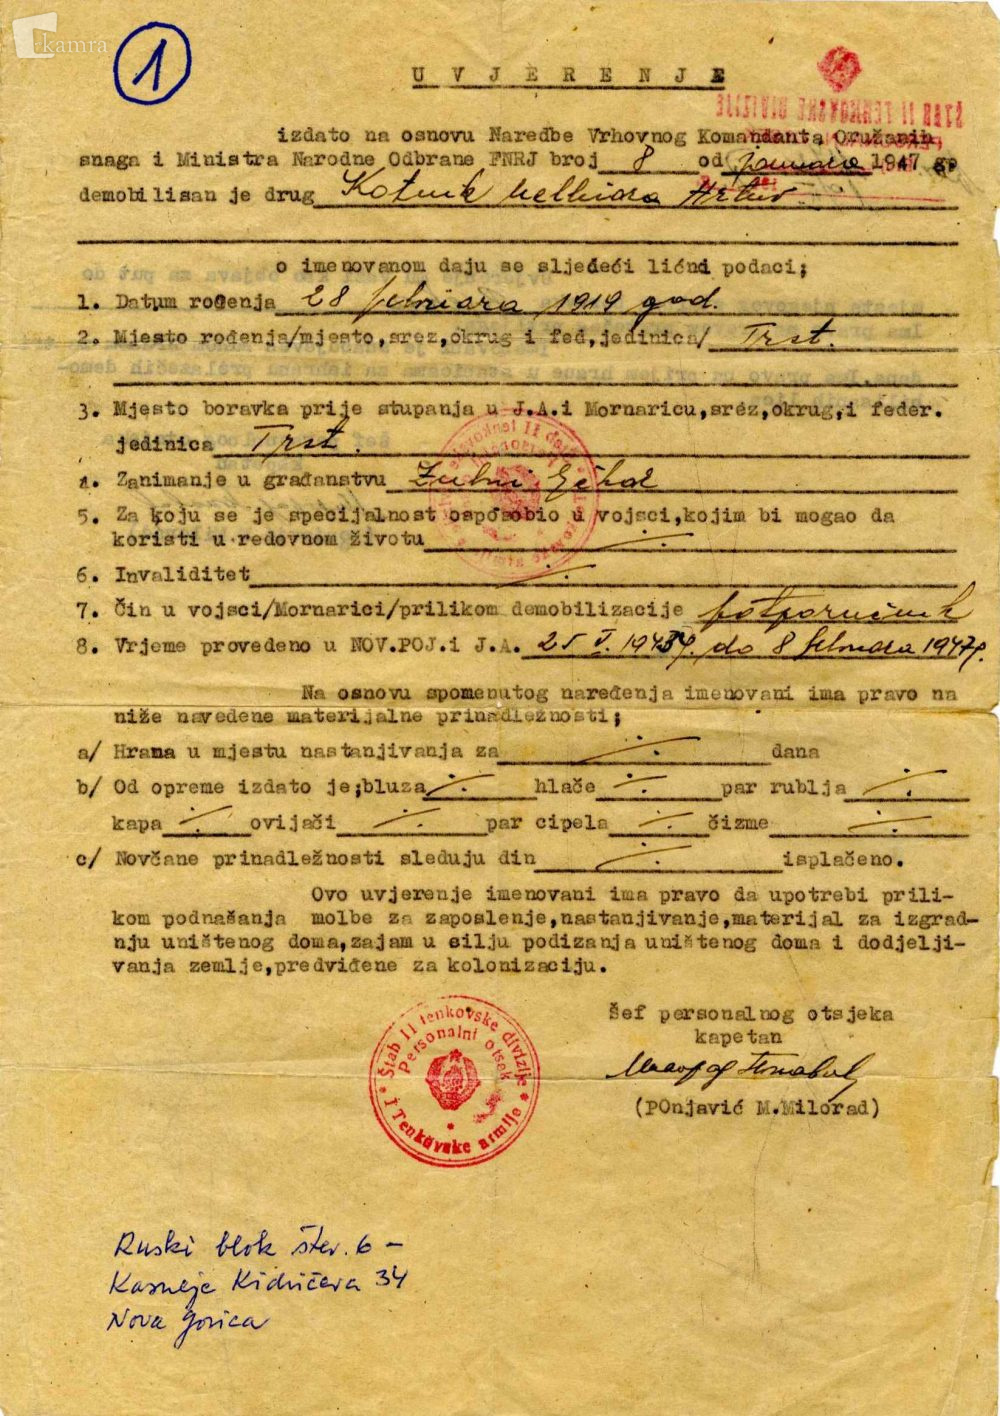 kamra
1
UVJERENJE
izdato na osnovu Naredbe Vrhovnog Komandanta Oružanih
snaga i Ministra Narodne Odbrane FNRJ broj 8 od januara 1947 g.
demobilisan je drug Kotnik Melhiora Artur.
o imenovanom daju se sljedeći lićni podaci;
1. Datum rođenja 28 februara 1919 god.
2. Mjesto rođenja/mjesto,srez,okrug i fed,jedinica/ Trst.
3. Mjesto boravka prije stupanja u J.A.i Mornaricu,srez,okrug,i feder.
jedinica Trst.
4. Zanimanje u građanstvu Zubni
5. Za koju se je specijalnost osposobio u vojsci,kojim bi mogao da
koristi u redovnom životu ·/·
6. Invaliditet ·/·
7. Čin u vojsci/Mornarici/prilikom demobilizacije potporučnik
8. Vrjeme provedeno u NOV.POJ.i J.A. do 8 februara 1947 g.
Na osnovu spomenutog naređenja imenovani ima pravo na
niže navedene materijalne prinadležnosti;
a/ Hrana u mjestu nastanjivanja za ·/· dana
b/ Od opreme izdato je;bluza ·/· hlače ·/· par rublja ·/·
kapa ·/· ovijači ·/· par cipela ·/· čizme ·/·
c/ Novčane prinadležnosti sleduju din ·/· isplačeno.
Ovo uvjerenje imenovani ima pravo da upotrebi prili-
kom podnašanja molbe za zaposlenje,nastanjivanje,materijal za izgrad-
nju uništenog doma,zajam u silju podizanja uništenog doma i dodjelji-
vanja zemlje,predviđene za kolonizaciju.
Šef personalnog otsjeka
kapetan
(POnjavić M.Milorad)
Štab II tenkovske divizije
Personalni otsek
I Tenkovske armije
Ruski blok štev. 6 –
Kasneje Kidričeva 34
Nova Gorica